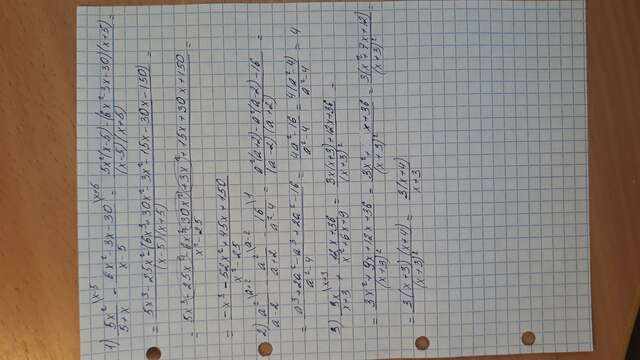 1) 5x²\x-5 / 5+x - 6x²-3x-30\x+5 / x-5 = 5x²(x-5)-(6x²-3x-30)(x+5) / (x-5)(x+5) =
= 5x³-25x²-(6x³+30x²-3x²-15x-30x-150) / (x-5)(x+5) =
= 5x³-25x²-6x³-30x²+3x²+15x+30x+150 / x²-25 =
= -x³-52x²+45x+150 / x²-25
2) a²\a+2 / a-2 - a²\a-2 / a+2 - 16\1 / a²-4 = a²(a+2)-a²(a-2)-16 / (a-2)(a+2) =
= a³+2a²-a³+2a²-16 / a²-4 = 4a²-16 / a²-4 = 4(a²-4) / a²-4 = 4
3) 3x\x+3 / x+3 + 12x+36 / x²+6x+9 = 3x(x+3)+12x+36 / (x+3)² =
= 3x²+9x+12x+36 / (x+3)² = 3x²+ x+36 / (x+3)² = 3(x²+7x+12) / (x+3)² =
= 3(x+3)(x+4) / (x+3)² = 3(x+4) / x+3